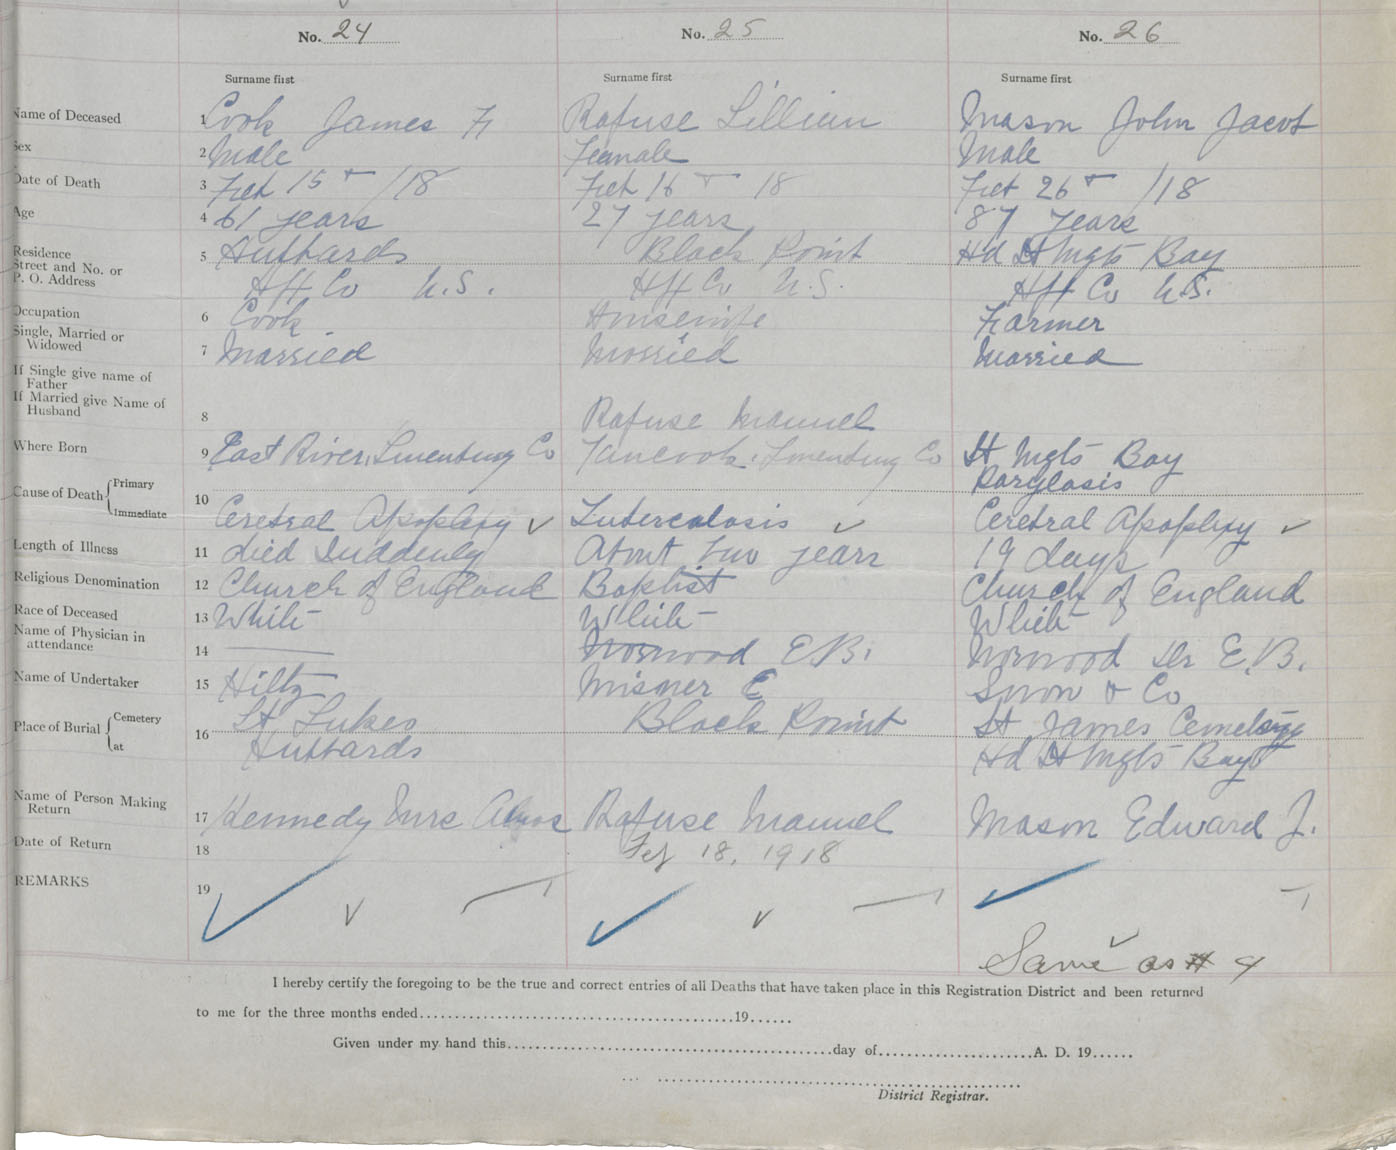 No. 24
No. 25
No. 26
Surname first
Surname first
Surname first
Name of Deceased 1 Cook James F Rafuse Lillian Mason John Jacob
Sex 2 Male Female Male
Date of Death 3 Feb 15 /18 Feb 16 18 Feb 26 /18
Age 4 61 years 27 years 87 years
Residence
Street and No. or
P. O. Address
5 Hubbards Black Point Hd St Mgts Bay
Hfx Co N.S. Hfx Co N.S. Hfx Co N.S.
Occupation 6 Cook Housewife Farmer
Single, Married or
Widowed
7 Married Married Married
If Single give name of
Father
If Married give Name of
Husband
8 Rafuse Manuel
Where Born 9 East River, Lunenburg Co Tancook, Lunenburg Co St Mgts Bay
Cause of Death { Primary Paralasis
Immediate
10 Cerebral Apoplexy ✓ Tuberculosis ✓ Cerebral Apoplexy ✓
Length of Illness 11 died Suddenly About two years 19 days
Religious Denomination 12 Church of England Baptist Church of England
Race of Deceased 13 White White White
Name of Physician in
attendance
14 —— Norwood E.B. Norwood Dr E.B.
Name of Undertaker 15 Hiltz Misner E Snow & Co
Place of Burial { Cemetery
at
16 St Lukes Black Point St James Cemetery
Hubbards Hd St Mgts Bay
Name of Person Making
Return
17 Kennedy Mrs Rafuse Manuel Mason Edward J.
Date of Return 18 Feb 18, 1918
REMARKS 19
Same as # 4
I hereby certify the foregoing to be the true and correct entries of all Deaths that have taken place in this Registration District and been returned
to me for the three months ended........19......
Given under my hand this........day of........A. D. 19......
District Registrar.